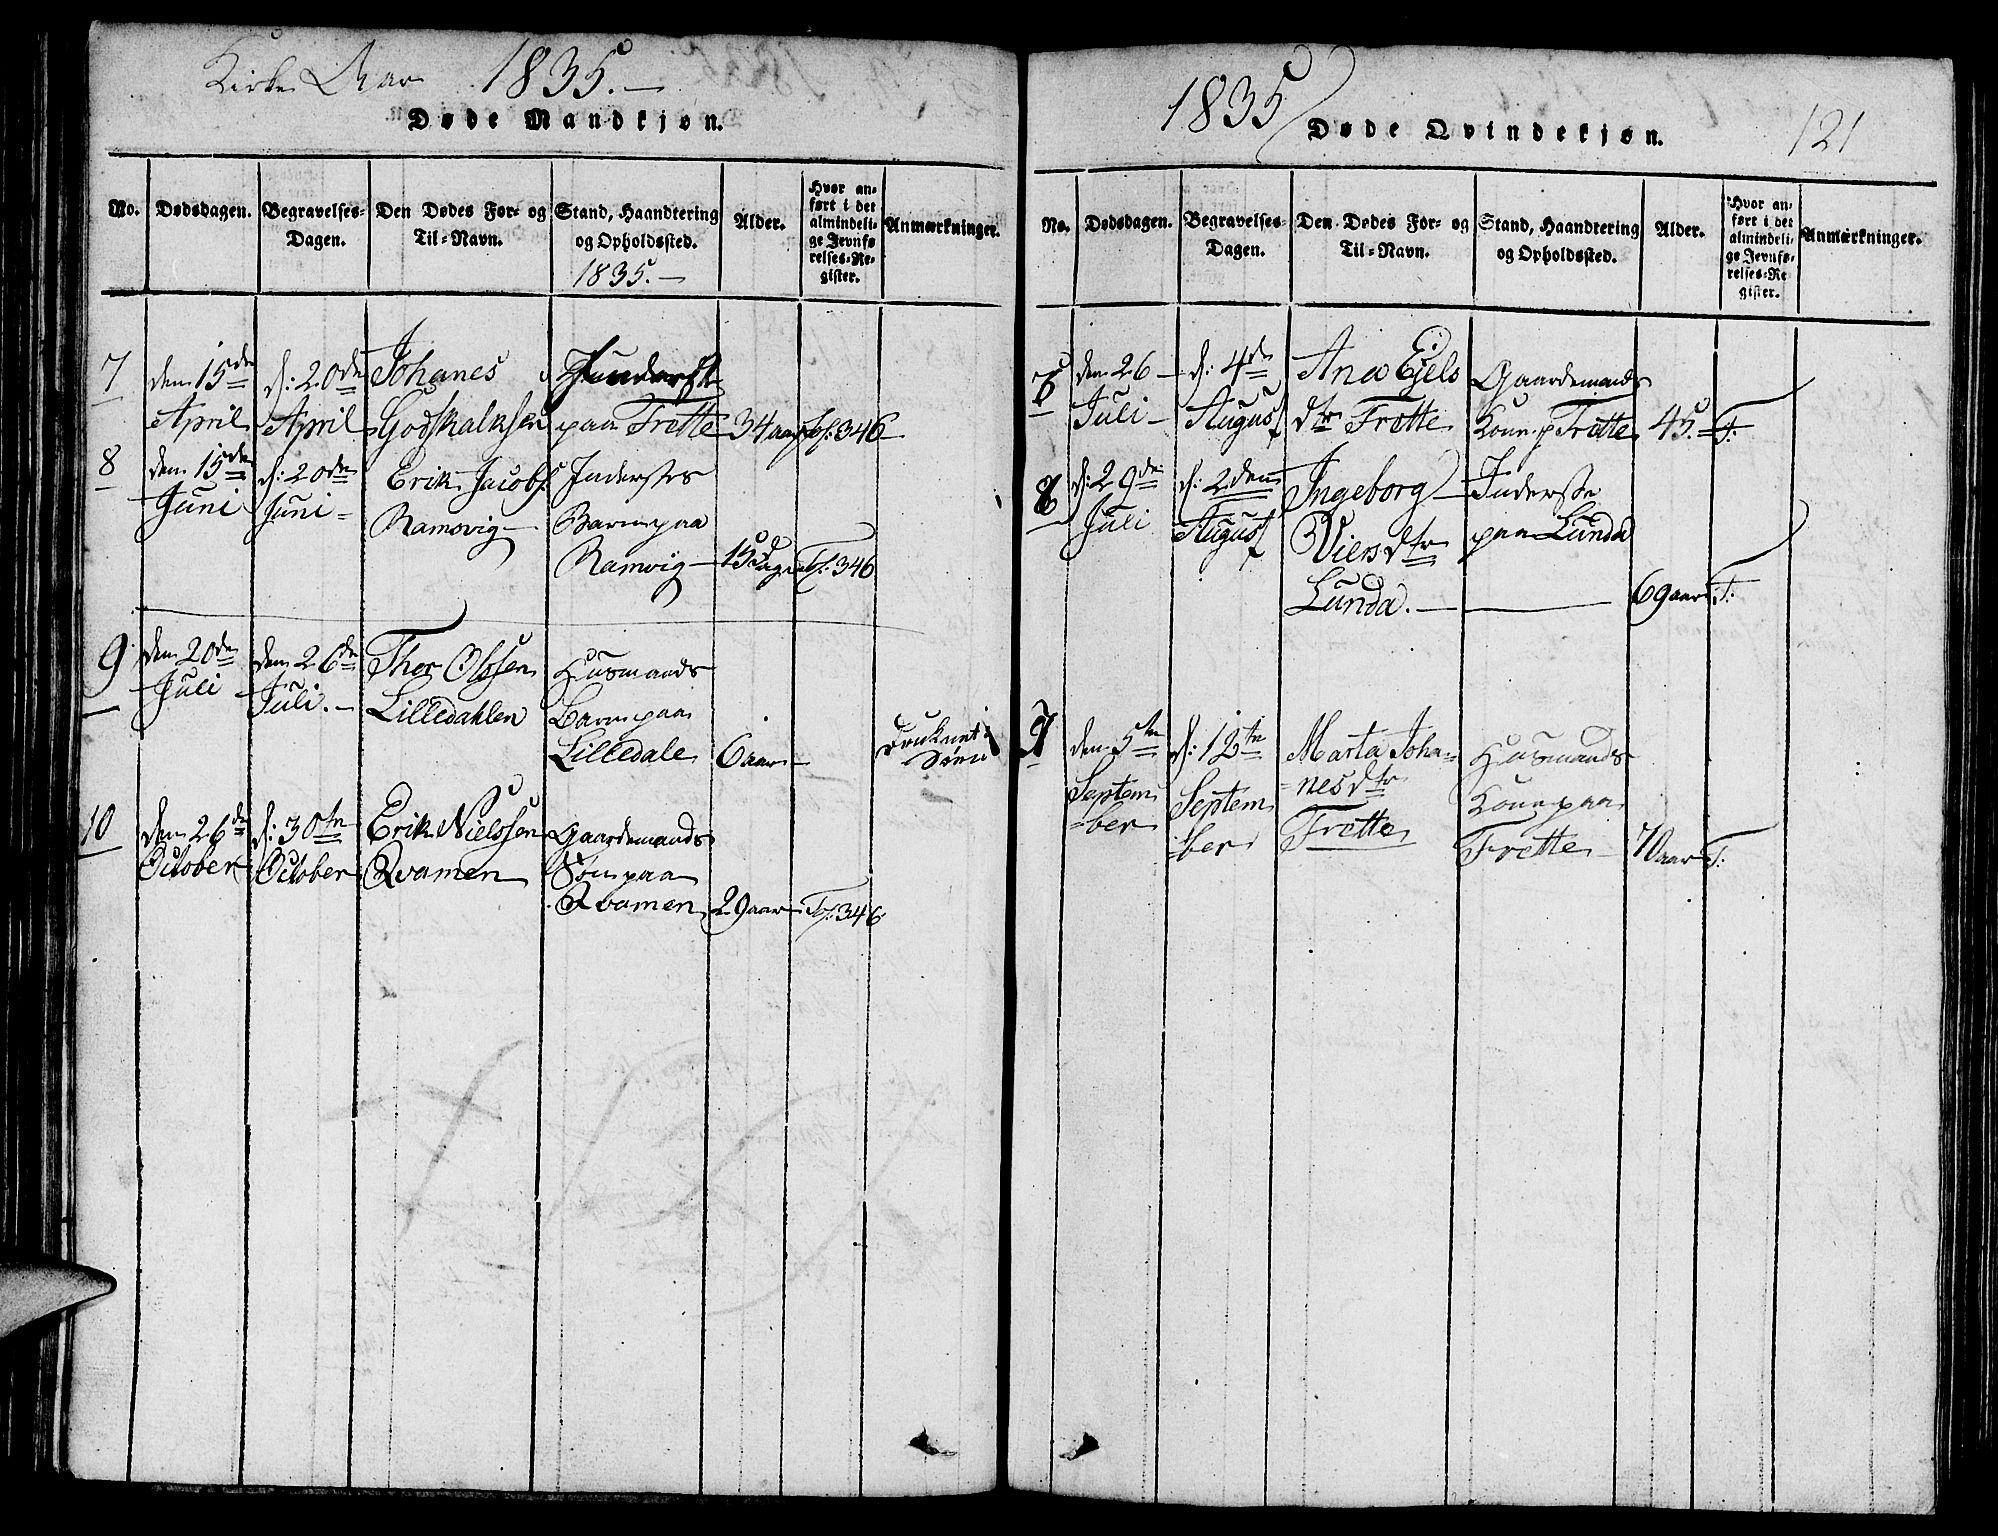 Kirke Aar 1835.-
Døde Mandkjøn.
No.
Dødsdagen.
Begravelses-
Dagen.
Den Dødes For- og
Til-Navn.
Stand, Haandtering
og Opholdssted.
1835.-
Alder.
Hvor an-
ført i det
almindeli-
ge Jevnfø
relses-Re-
gister.
Anmærkninger.
7
den 15de
April
d: 20de
April
Johanes
Godskalksen
paa Frette
34 aar
Fol: 346
8
den 15de
Juni
d: 20de
Juni -
Erik Jacobs.
Ramsvig
Inderstes
Barn paa
Ramvig
15 Dage
Fol. 346
9
den 20de
Juli
den 26de
Juli. -
Thor Olssen
Lilledahlen
Husmands
Barn paa
Lilledale
6 aar
Druknet i
10
den 26de
October
d: 30te
October
Erik Nielssen
Qvamen
Gaardemands
Søn paa
Qvamen
29 aar
Fol: 346
1835
Døde Qvindekjøn.
121
No.
Dødsdagen.
Begravelses-
Dagen.
Den Dødes For- og
Til-Navn.
Stand, Haandtering
og Opholdssted.
Alder.
Hvor an-
ført i det
almindeli
ge Jevnfø-
relses-Re
gister.
Anmærkninger.
den 26
Juli
d: 4de
August
Ana Ejels
dtr Frette
Gaardemands
Kone p Frette
45.
F:
8
d: 29de
Juli
d: 2den
August
Ingeborg
Viersdtr
Lunda.
Inderste
paa Lunda
69 aar
F:
9
den 5te
Septem
=ber
d: 12te
Septem
=ber
Marta Joha=
=nesdtr
Frette
Husmands
Kone paa
Frette
70 aar
F: